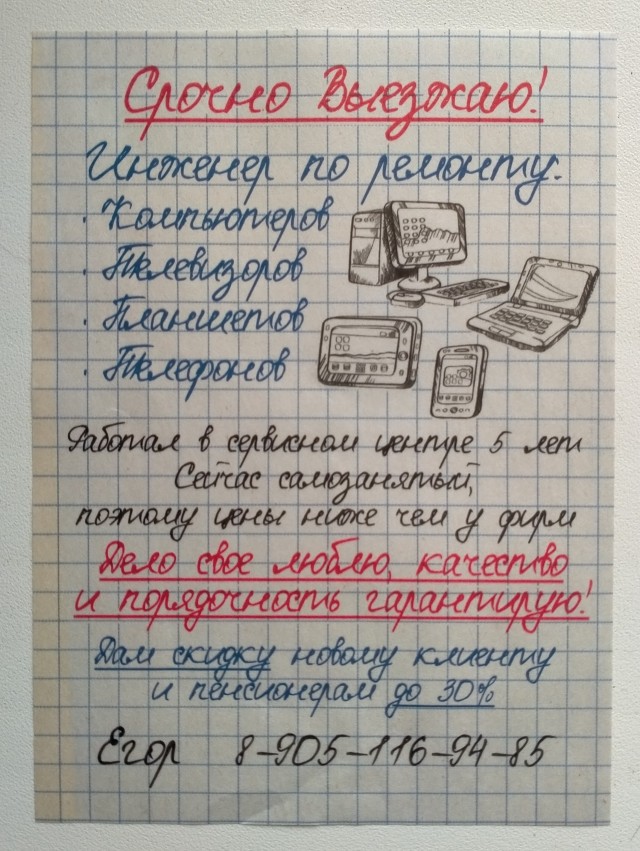 Срочно Выезжаю!
Инженер по ремонту:
· Компьютеров
· Телевизоров
· Планшетов
· Телефонов
Работал в сервисном центре 5 лет
Сейчас самозанятый,
поэтому цены ниже чем у фирм
Дело свое люблю, качество
и порядочность гарантирую!
Дам скидку новому клиенту
и пенсионерам до 30%
Егор 8-905-116-94-85